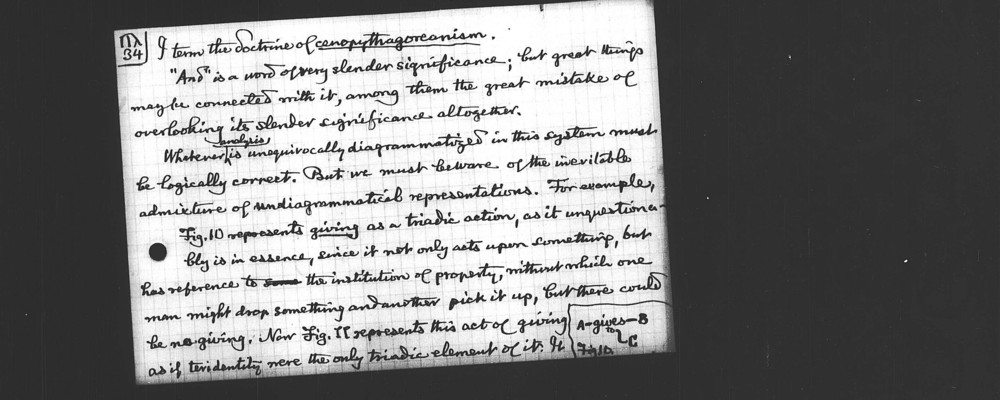 Πλ
34
I term the doctrine of cenopythagoreanism.
"And" is a word of very slender significance; but great things
may be connected with it, among them the great mistake of
overlooking its slender significance altogether.
analysis
Whatever is unequivocally diagrammatized in this system must
be logically correct. But we must beware of the inevitable
admixture of undiagrammatical representations. For example,
Fig. 10 represents giving as a triadic action, as it unquestiona-
bly is in essence, since it not only acts upon something, but
has reference to some the institution of property, without which one
man might drop something and another pick it up, but there could
be no giving. Now Fig. 11 represents this act of giving
as if teridentity were the only triadic element of it. It
A-gives-B
to
C
Fig 10